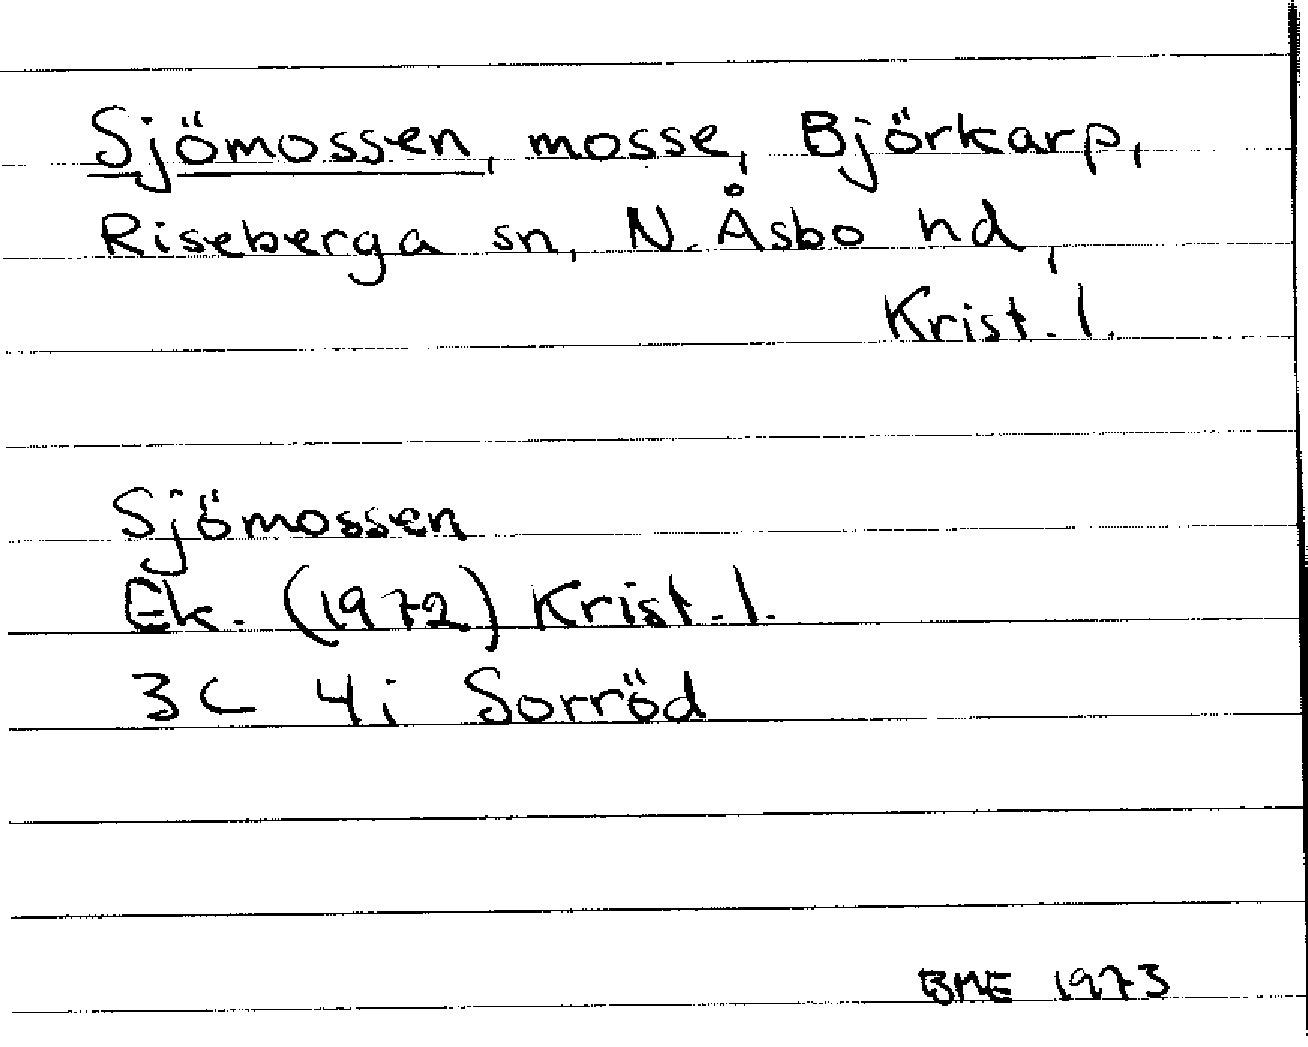 Sjömossen, mosse, Björkarp,
Riseberga sn, N. Åsbo hd,
Krist. l.
Sjömossen
Ek. (1972) Krist. l.
3C 4i Sorröd
BME 1973